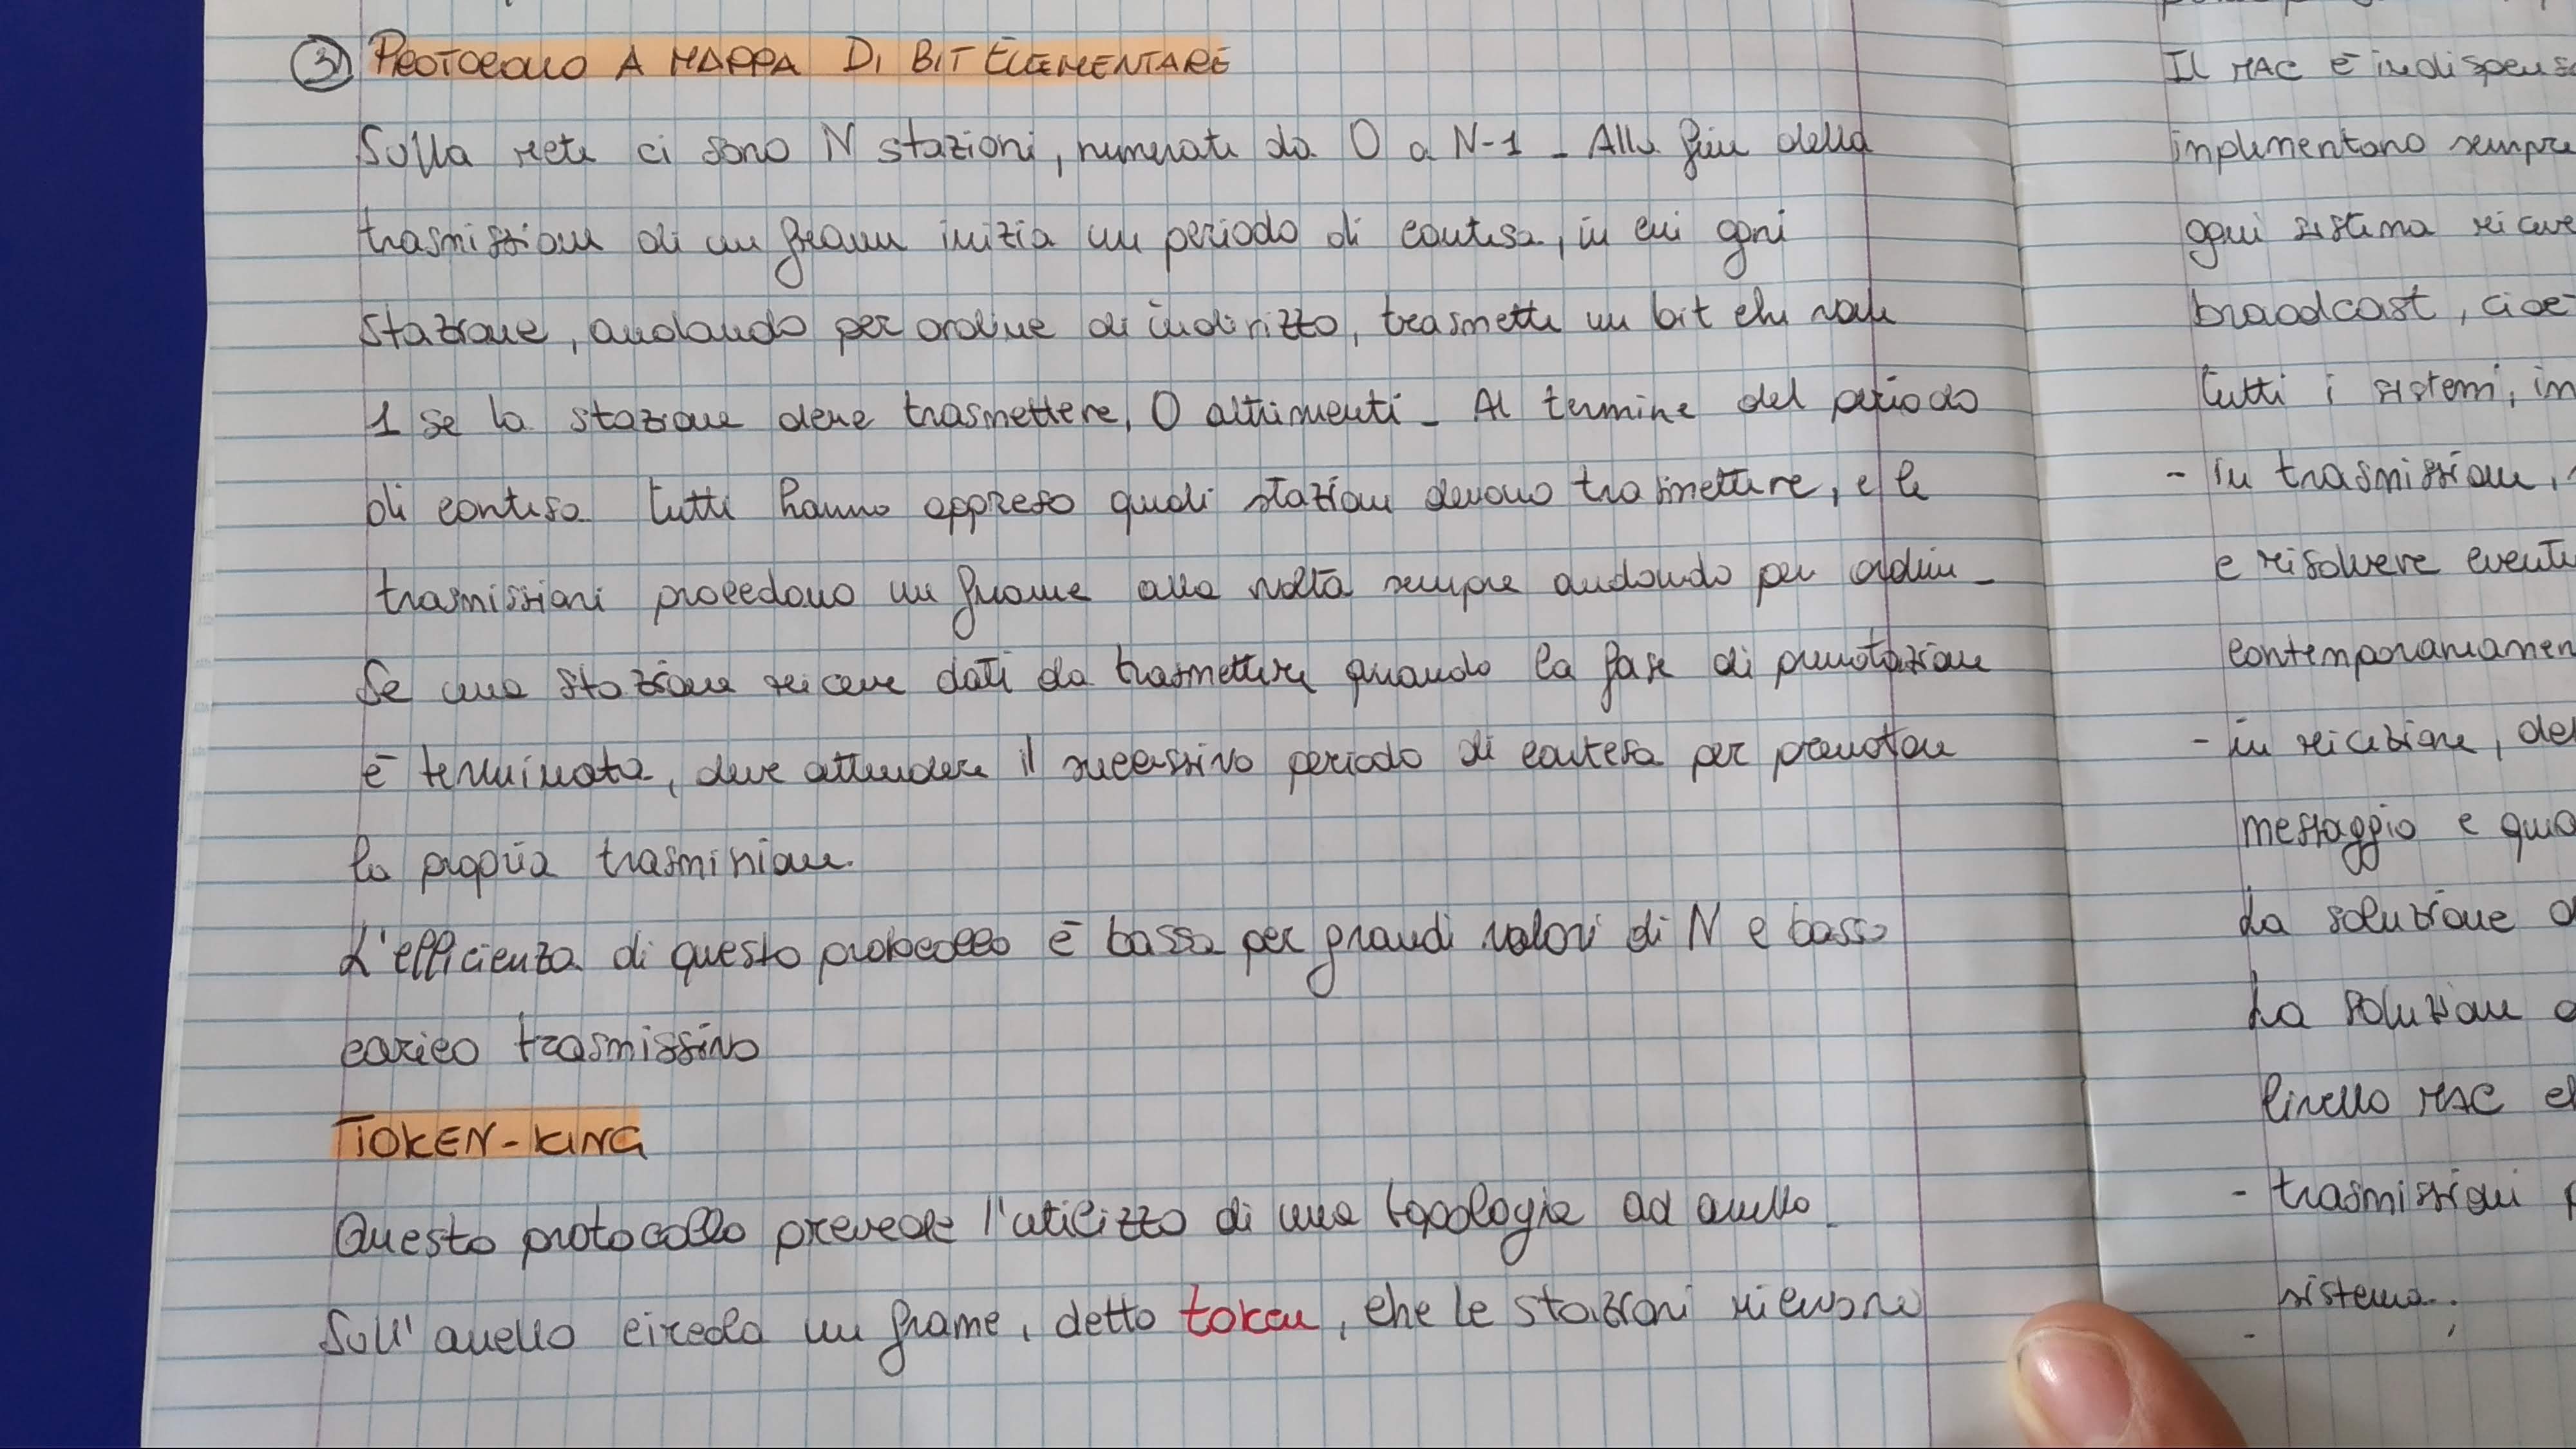 3) PROTOCOLLO A MAPPA DI BIT ELEMENTARE
Sulla rete ci sono N stazioni, numerate da 0 a N-1 - Alla fine della
trasmissione di un frame inizia un periodo di contesa, in cui ogni
stazione, andando per ordine di indirizzo, trasmette un bit che vale
1 se la stazione deve trasmettere, 0 altrimenti - Al termine del periodo
di contesa tutti hanno appreso quali stazioni devono trasmettere, e le
trasmissioni procedono un frame alla volta sempre andando per ordine -
Se una stazione riceve dati da trasmettere quando la fase di prenotazione
è terminata, deve attendere il successivo periodo di contesa per prenotare
la propria trasmissione.
L'efficienza di questo protocollo è bassa per grandi valori di N e basso
carico trasmissivo
TOKEN-RING
Questo protocollo prevede l'utilizzo di una topologia ad anello -
Sull'anello circola un frame, detto token, che le stazioni ricevono
Il MAC è indispensa
implementano sempre
ogni sistema riceve
braodcast, cioè
tutti i sistemi, in
- in trasmissione,
e risolvere eventu
contemporaneamen
- in ricezione, de
messaggio e qua
La soluzione
La soluzione
livello MAC
- trasmissioni p
sistema.